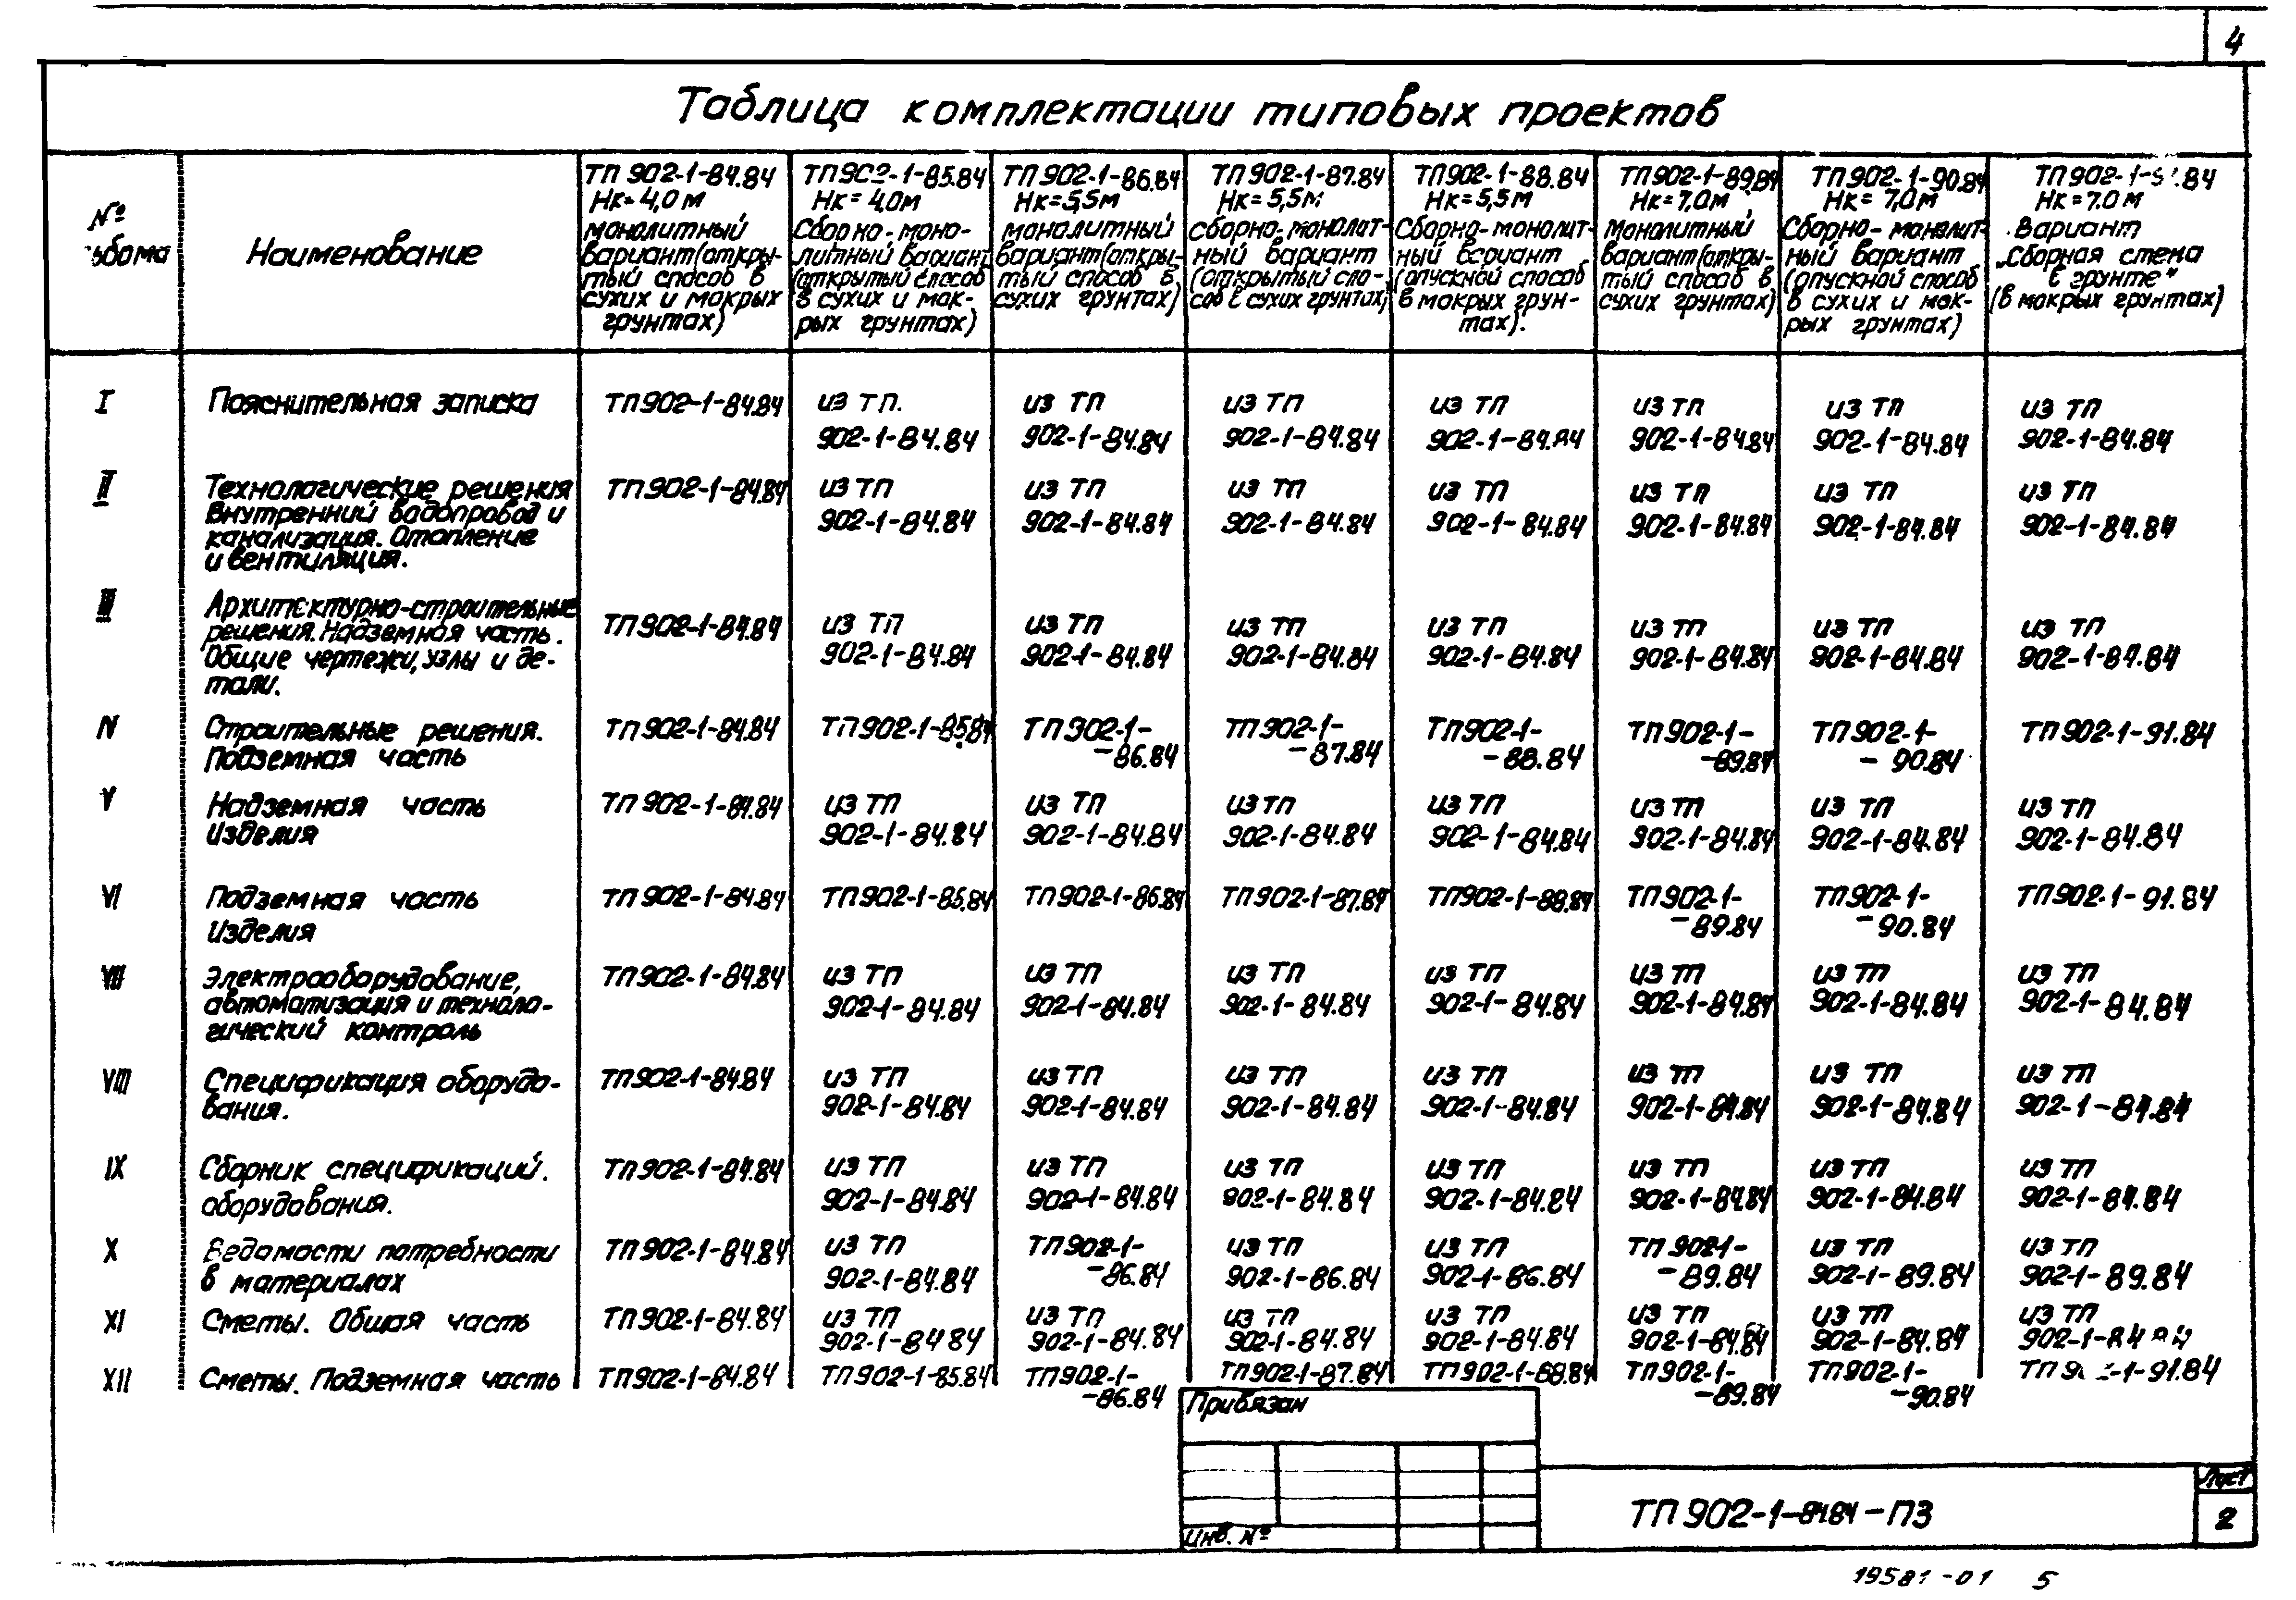 4
Таблица комплектации типовых проектов
№
альбома
Наименование
ТП 902-1-84.84
Нк= 4,0 м
монолитный
вариант (откры-
тый способ в
сухих и мокрых
грунтах)
ТП 902-1-85.84
Нк= 4,0м
Сборно-моно-
литный вариант
(открытый способ
в сухих и мок-
рых грунтах)
ТП 902-1-86.84
Нк=5,5м
монолитный
вариант (откры-
тый способ в
сухих грунтах)
ТП 902-1-87.84
Нк= 5,5м
сборно-монолит-
ный вариант
(открытый спо-
соб в сухих грунтах)
ТП902-1-88.84
Нк=5,5м
Сборно-монолит-
ный вариант
(опускной способ
в мокрых грун-
тах).
ТП902-1-89.84
Нк=7,0м
Монолитный
вариант (откры-
тый способ в
сухих грунтах)
ТП902-1-90.84
Нк= 7,0м
Сборно-монолит-
ный вариант
(опускной способ
в сухих и мок-
рых грунтах)
ТП902-1-91.84
Нк=7.0 м
Вариант
„Сборная стена
в грунте"
(в мокрых грунтах)
I Пояснительная записка ТП902-1-84.84 из ТП. из ТП из ТП из ТП из ТП из ТП из ТП
902-1-84.84 902-1-84.84 902-1-84.84 902-1-84.84 902-1-84.84 902-1-84.84 902-1-84.84
II Технологические решения ТП902-1-84.84 из ТП из ТП из ТП из ТП из ТП из ТП из ТП
Внутренний водопровод и 902-1-84.84 902-1-84.84 902-1-84.84 902-1-84.84 902-1-84.84 902-1-84.84 902-1-84.84
канализация. Отопление
и вентиляция.
III Архитектурно-строительные
решения. Надземная часть. ТП902-1-84.84 из ТП из ТП из ТП из ТП из ТП из ТП из ТП
Общие чертежи, узлы и де- 902-1-84.84 902-1-84.84 902-1-84.84 902-1-84.84 902-1-84.84 902-1-84.84 902-1-84.84
тали.
IV Строительные решения. ТП902-1-84.84 ТП902-1-85.84 ТП902-1- ТП902-1- ТП902-1- ТП902-1- ТП902-1- ТП902-1-91.84
Подземная часть -86.84 -87.84 -88.84 -89.84 - 90.84
V Надземная часть ТП 902-1-84.84 из ТП из ТП из ТП из ТП из ТП из ТП из ТП
Изделия 902-1-84.84 902-1-84.84 902-1-84.84 902-1-84.84 902-1-84.84 902-1-84.84 902-1-84.84
VI Подземная часть ТП902-1-84.84 ТП902-1-85.84 ТП902-1-86.84 ТП902-1-87.84 ТП902-1-88.84 ТП902-1- ТП902-1- ТП902-1-91.84
Изделия -89.84 -90.84
VII Электрооборудование, ТП902-1-84.84 из ТП из ТП из ТП из ТП из ТП из ТП из ТП
автоматизация и техноло- 902-1-84.84 902-1-84.84 902-1-84.84 902-1-84.84 902-1-84.84 902-1-84.84 902-1-84.84
гический контроль
VIII Спецификация оборудо- ТП902-1-84.84 из ТП из ТП из ТП из ТП из ТП из ТП из ТП
вания. 902-1-84.84 902-1-84.84 902-1-84.84 902-1-84.84 902-1-84.84 902-1-84.84 902-1-84.84
IX Сборник спецификаций. ТП902-1-84.84 из ТП из ТП из ТП из ТП из ТП из ТП из ТП
оборудования. 902-1-84.84 902-1-84.84 902-1-84.84 902-1-84.84 902-1-84.84 902-1-84.84 902-1-84.84
X Ведомости потребности ТП902-1-84.84 из ТП ТП902-1- из ТП из ТП ТП 902-1- из ТП из ТП
в материалах 902-1-84.84 -86.84 902-1-86.84 902-1-86.84 -89.84 902-1-89.84 902-1-89.84
XI Сметы. Общая часть ТП902-1-84.84 из ТП из ТП из ТП из ТП из ТП из ТП из ТП
902-1-84 84 902-1-84.84 902-1-84.84 902-1-84.84 902-1-84.84 902-1-84.84 902-1-84.84
XII Сметы. Подземная часть ТП902-1-84.84 ТП902-1-85.84 ТП902-1- ТП902-1-87.84 ТП902-1-88.84 ТП902-1- ТП902-1- ТП902-1-91.84
-86.84 -89.84 -90.84
Привязан
Инв. №
ТП 902-1-84.84-ПЗ
Лист
2
19581-01 5